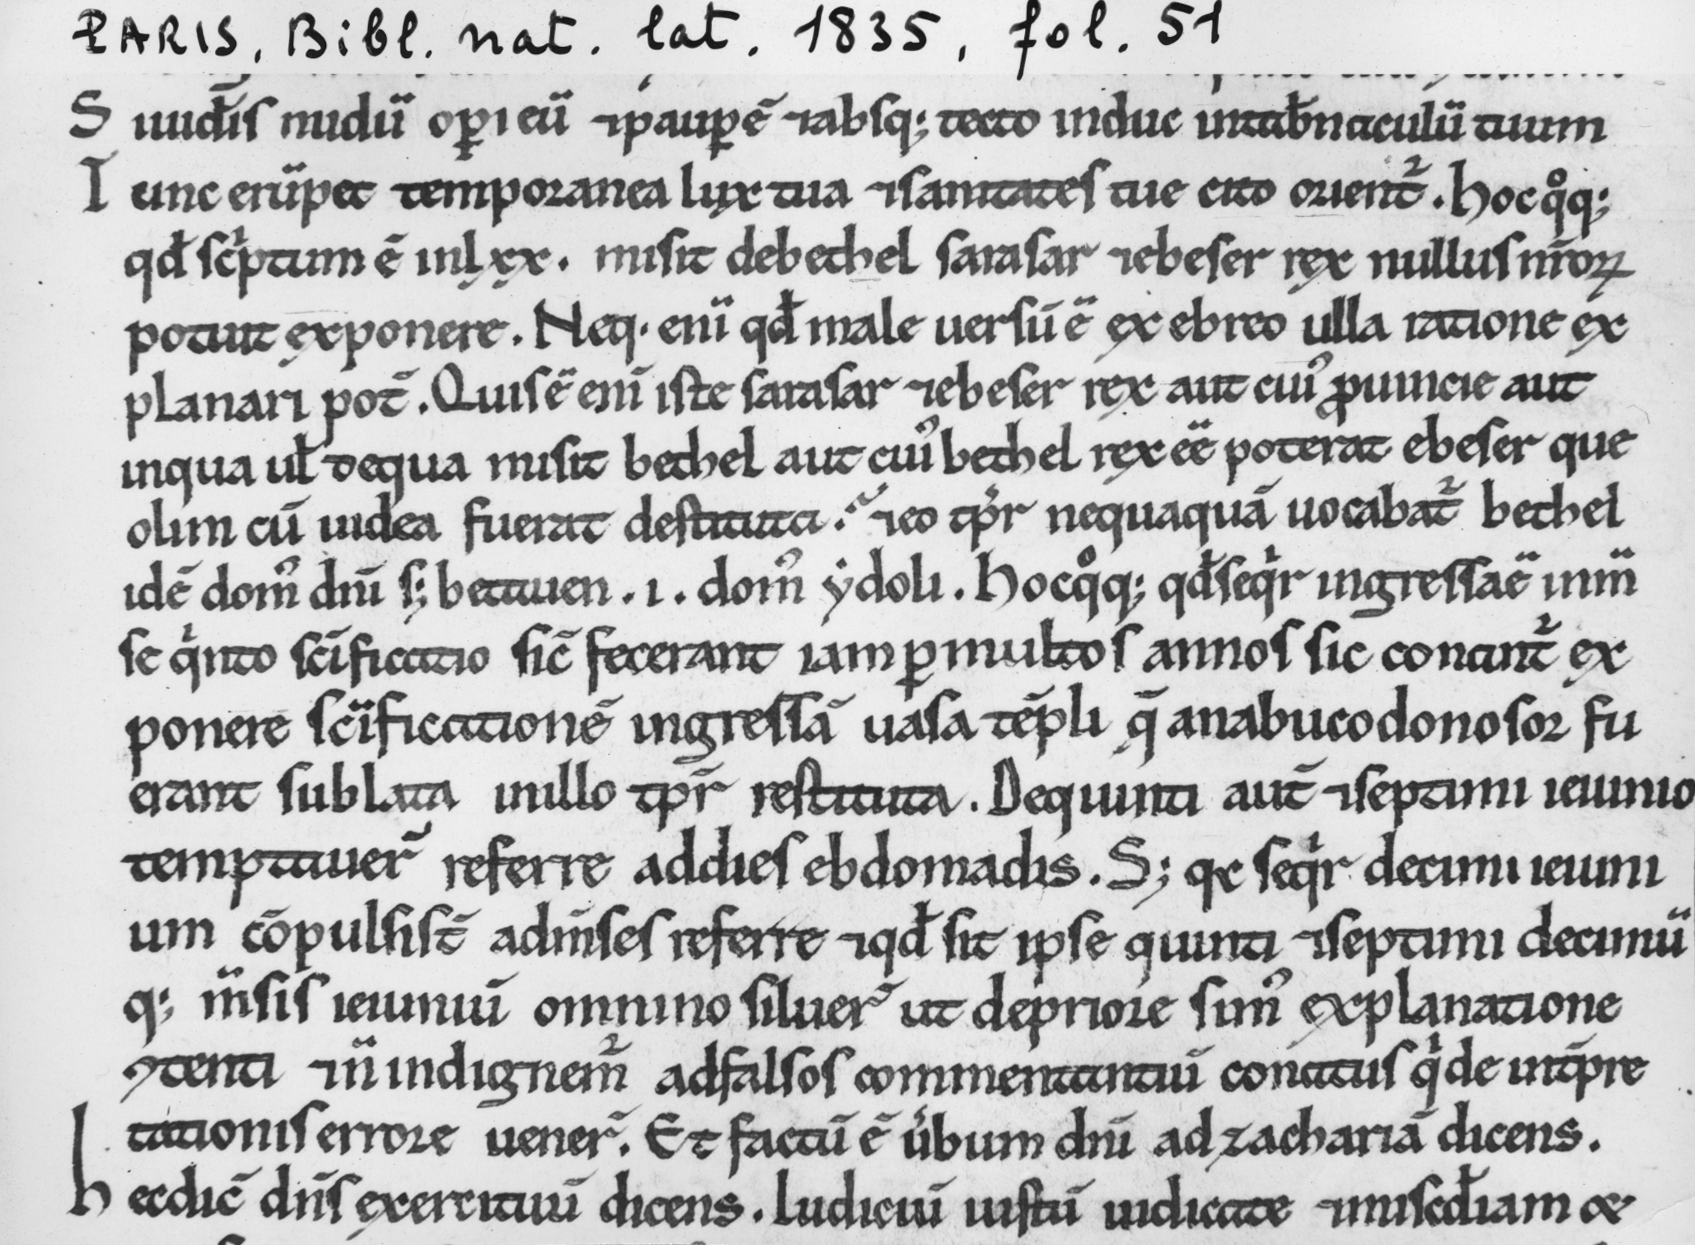 PARIS, Bibl. nat. lat. 1835, fol. 51
S i uid̄is nudū op̱i eū ⁊ paup̱ē ⁊ absq; tecto induc in tab̄naculū tuum
T unc erūpet temporanea lux tua ⁊ sanitates tue cito orient᷑. hoc qͦq;
qđ sc̓ptum ē in lxx. misit de bethel sarasar ⁊ ebeser rex nullus nr̄oꝝ
potuit exponere. Neq. enī qđ male uersū ē ex ebreo ulla ratione ex
planari pot̄. Quis ē enī iste sarasar ⁊ ebeser rex aut cuiꝰ ꝓuincie aut
in qua ul̄ de qua misit bethel aut cuiꝰ bethel rex eē poterat ebeser que
olim cū iudea fuerat destituta. ⁊ eo tp̄r nequaquā uocabat᷑ bethel
idē domꝰ dn̄i s; bettauen .i. domꝰ ẏdoli. hoc qͦq; qđ seqͥr ingressa ē in m̄
se qͥnto sc̄ificatio sic̄ fecerant iam ꝑ multos annos sic conant᷑ ex
ponere sc̄ificationē ingressā uasa tēpli q̄ a nabucodonosor fu
erant sublata in illo tp̄r restituta. De quinti aut̄ ⁊ septimi ieiunio
temptauer̄ referre ad dies ebdomadis. S; qꝛ seqͥr decimi ieiuni
um cōpulsi st̄ ad m̄ses referre ⁊ qđ sit ipse quinti ⁊ septimi decimū
q; m̄sis ieiuniū omnino siluer̄ ut de priore simꝰ explanatione
ꝯtenti ⁊ n̄ indignem᷑ ad falsos commentantiū conatus qͥ de int̄pre
tationis errore uener̄. Et factū ē u̓bum dn̄i ad zachariā dicens.
h ec dic̄ dn̄s exercituū dicens. Iudiciū iustū iudicate ⁊ misc̄diam &